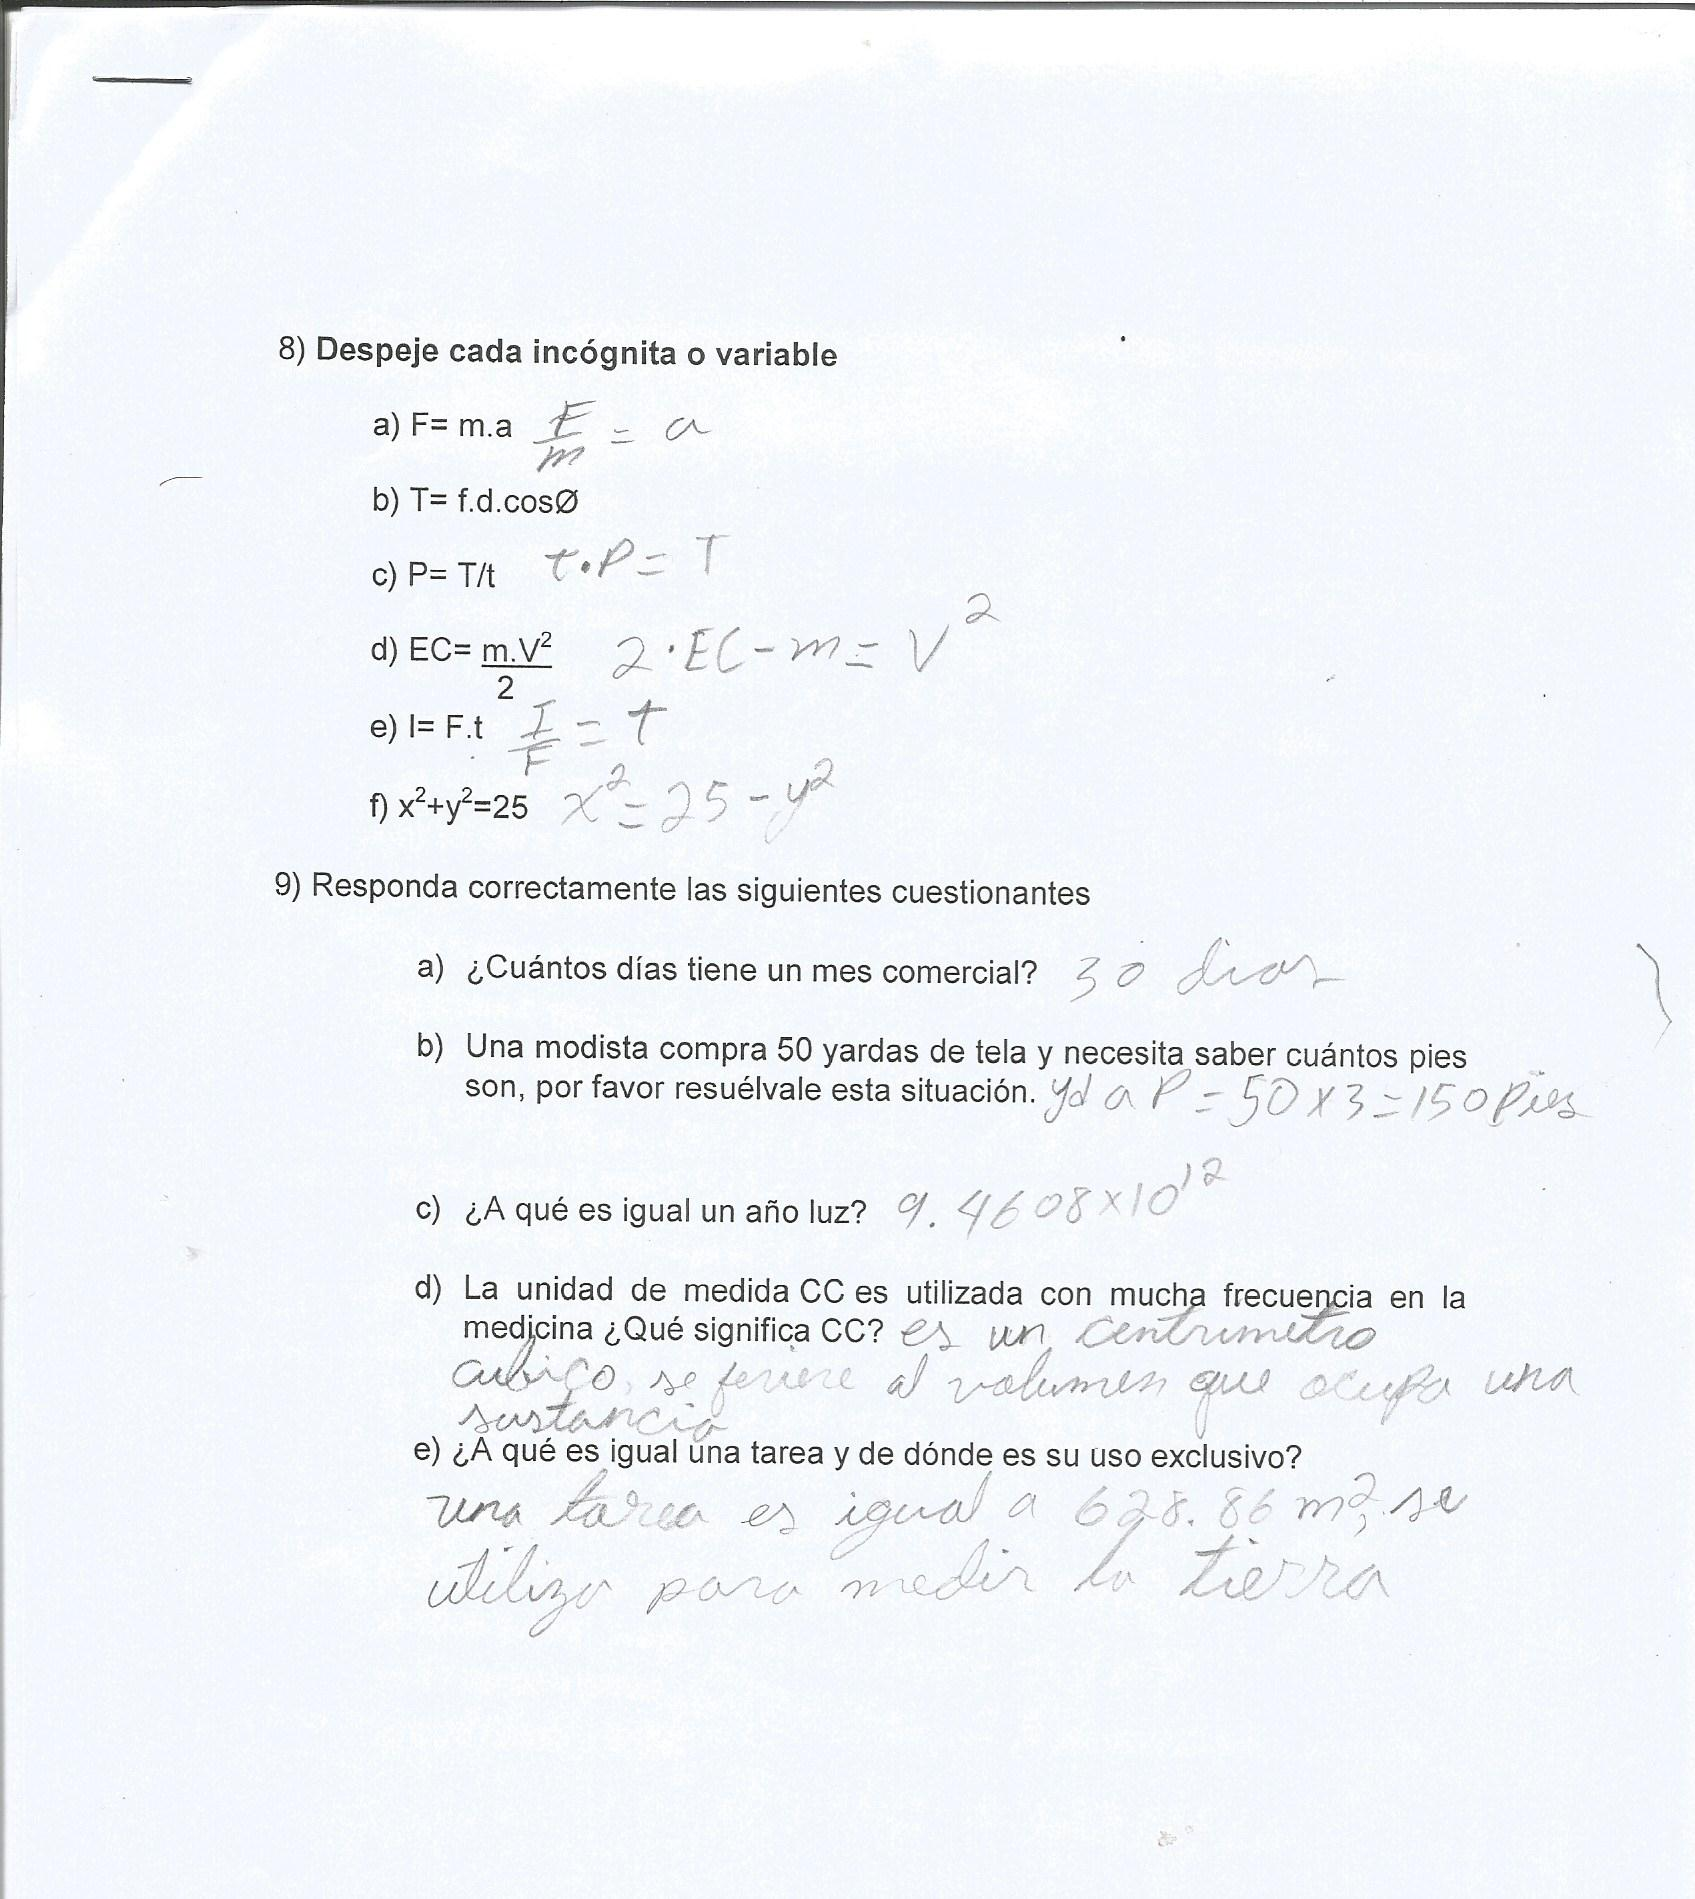 8) Despeje cada incógnita o variable
a) F= m.a F/m = a
b) T= f.d.cosØ
c) P= T/t t.P = T
d) EC= m.V²/2 2·EC-m = V²
e) I= F.t I/F = t
f) x²+y²=25 x²=25-y²
9) Responda correctamente las siguientes cuestionantes
a) ¿Cuántos días tiene un mes comercial? 30 dias
b) Una modista compra 50 yardas de tela y necesita saber cuántos pies
son, por favor resuélvale esta situación. yd a P = 50x3=150 Pies
c) ¿A qué es igual un año luz? 9.4608x10¹²
d) La unidad de medida CC es utilizada con mucha frecuencia en la
medicina ¿Qué significa CC? es un centrimetro
cubico, se feriere al volumen que ocupa una
sustancia
e) ¿A qué es igual una tarea y de dónde es su uso exclusivo?
una tarea es igual a 628.86 m², se
utiliza para medir la tierra